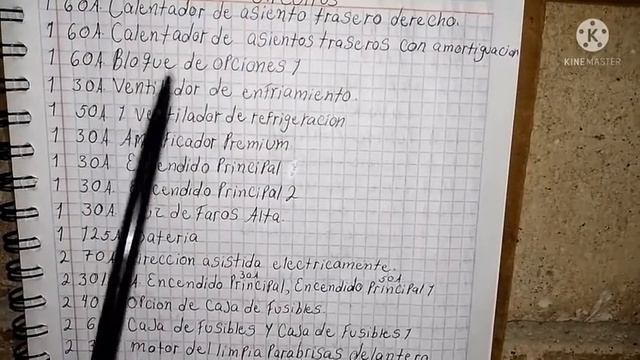 1 60A Calentador de asiento trasero derecho.
1 60A Calentador de asientos traseros con amortiguacion
1 60A Bloque de opciones 1
1 30A Ventilador de enfriamiento.
1 50A 1 Ventilador de refrigeracion
1 30A Premium
1 30A Encendido Principal
1 30A Encendido Principal 2
1 30A de Faros Alta.
1 125A bateria
2 70A Direccion asistida electricamente.
2 30A Encendido Principal, Encendido Principal 1
30A 50A
2 40 Opcion de Caja de Fusibles.
2 6 Caja de Fusibles y Caja de Fusibles 1
2 3 motor del limpia parabrisas delantero
KINEMASTER